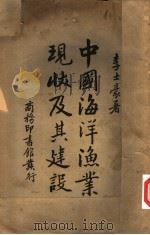 李士豪著
中國海洋漁業
現狀及其建設
商務印書館發行